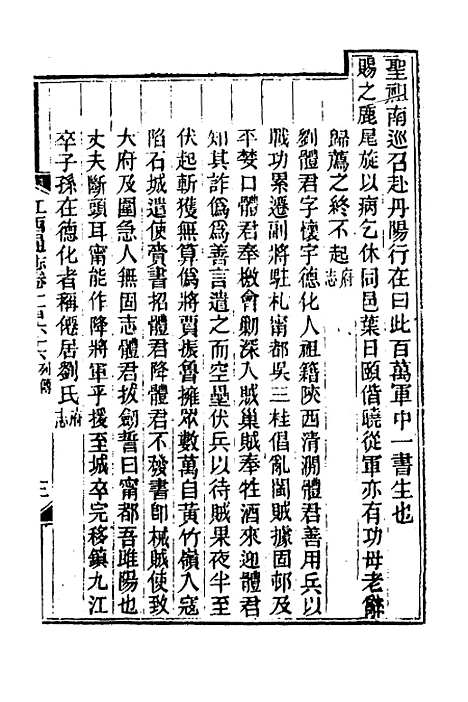 聖祖南巡召赴丹陽行在曰此百萬軍中一書生也
賜之鹿尾旋以病乞休同邑葉日頤偕曉從軍亦有功母老辭
歸薦之終不起府志
劉體君字懷宇德化人祖籍陝西清澗體君善用兵以
戰功累遷副將駐札甯都吳三桂倡亂閩賊據固邨及
平婪口體君奉檄會勦深入賊巢賊奉牲酒來迎體君
知其詐僞爲善言遣之而空壘伏兵以待賊果夜半至
伏起斬獲無算僞將賈振魯擁眾數萬自黃竹嶺入寇
陷石城遣使賫書招體君降體君不發書卽械賊使致
大府及圍急人無固志體君拔劍誓曰甯都吾睢陽也
丈夫斷頭耳甯能作降將軍乎援至城卒完移鎮九江
卒子孫在德化者稱僊居劉氏府志
江西通志卷一百六十六列傳 三